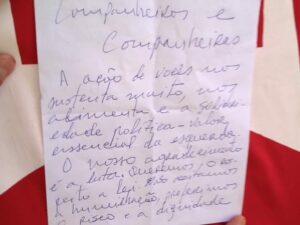 Companheiros e
Companheiras
A ação de vocês nos
sustenta muito, nos
alimenta e a solidari
edade política - valor
essencial da esquerda.
O nosso agradecimento
é a luta. Queremos, o res
peito a lei. Não aceitamos
a humilhação, preferimos
o risco e a dignidade